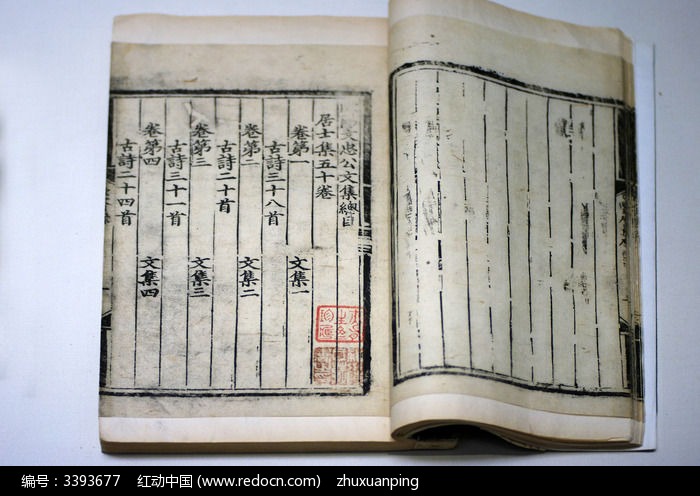 文忠公文集總目
居士集五十卷
卷第一 文集一
古詩三十八首
卷第二 文集二
古詩二十首
卷第三 文集三
古詩三十一首
卷第四 文集四
古詩二十四首
编号：3393677 红动中国 (www.redocn.com) zhuxuanping